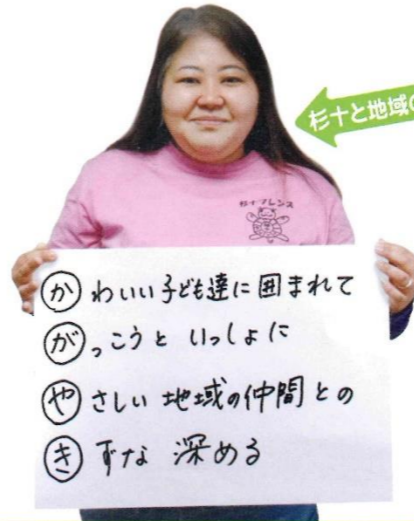 杉十と地域の
杉十フレンズ
かわいい子ども達に囲まれて
がっこうと いっしょに
やさしい 地域の仲間との
きずな 深める